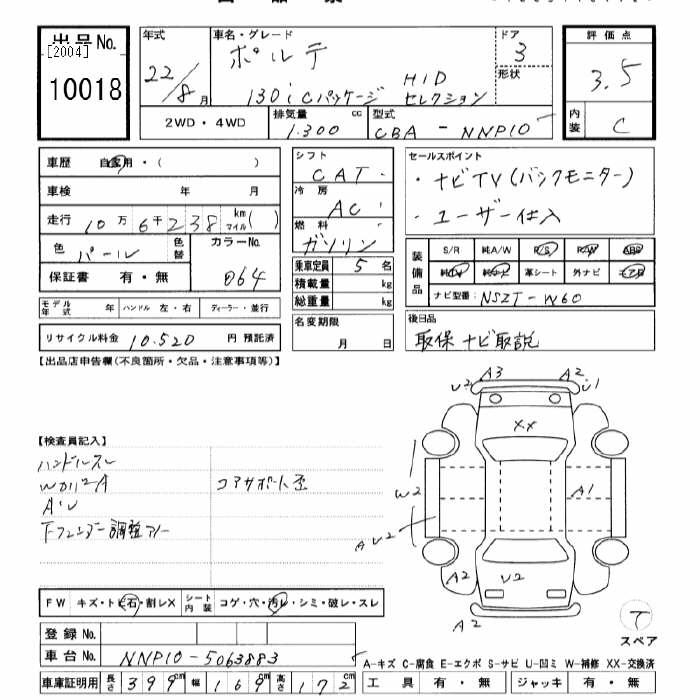 出品No.
[2004]
10018
年式
22/8月
車名・グレード
ポルテ
130i Cパッケージ HID セレクション
ドア
3
形状
評価点
3.5
内装
C
2WD・4WD
排気量
1.300 cc
型式
CBA - NNP10
車歴 自家用・( )
車検 年 月
走行 10万6千238 km マイル( )
色 パール
色替
カラーNo.
064
保証書 有・無
シフト
CAT
冷房
AC
燃料
ガソリン
乗車定員 5 名
積載量 kg
総重量 kg
セールスポイント
・ナビTV(バックモニター)
・ユーザー仕入
装備品
S/R 純A/W P/S P/W ABS
革シート 外ナビ
ナビ型番: NSZT-W60
モデル年式 年 ハンドル 左・右 ディーラー・並行
リサイクル料金 10.520 円 預託済
名変期限
月 日
後日品
取保 ナビ取説
【出品店申告欄(不良箇所・欠品・注意事項等)】
A3
A2
U2
U1
XX
【検査員記入】
ハンドルスレ
コアサポート歪
W2
A1
AU2
A2
U2
A2
FW キズ・トビ石・割レX
シート内装
コゲ・穴・汚レ・シミ・破レ・スレ
T
スペア
登録No.
車台No. NNP10-5063883
A-キズ C-腐食 E-エクボ S-サビ U-凹ミ W-補修 XX-交換済
車庫証明用 長さ 399cm 幅 169cm 高さ 172cm
工具 有・無 ジャッキ 有・無